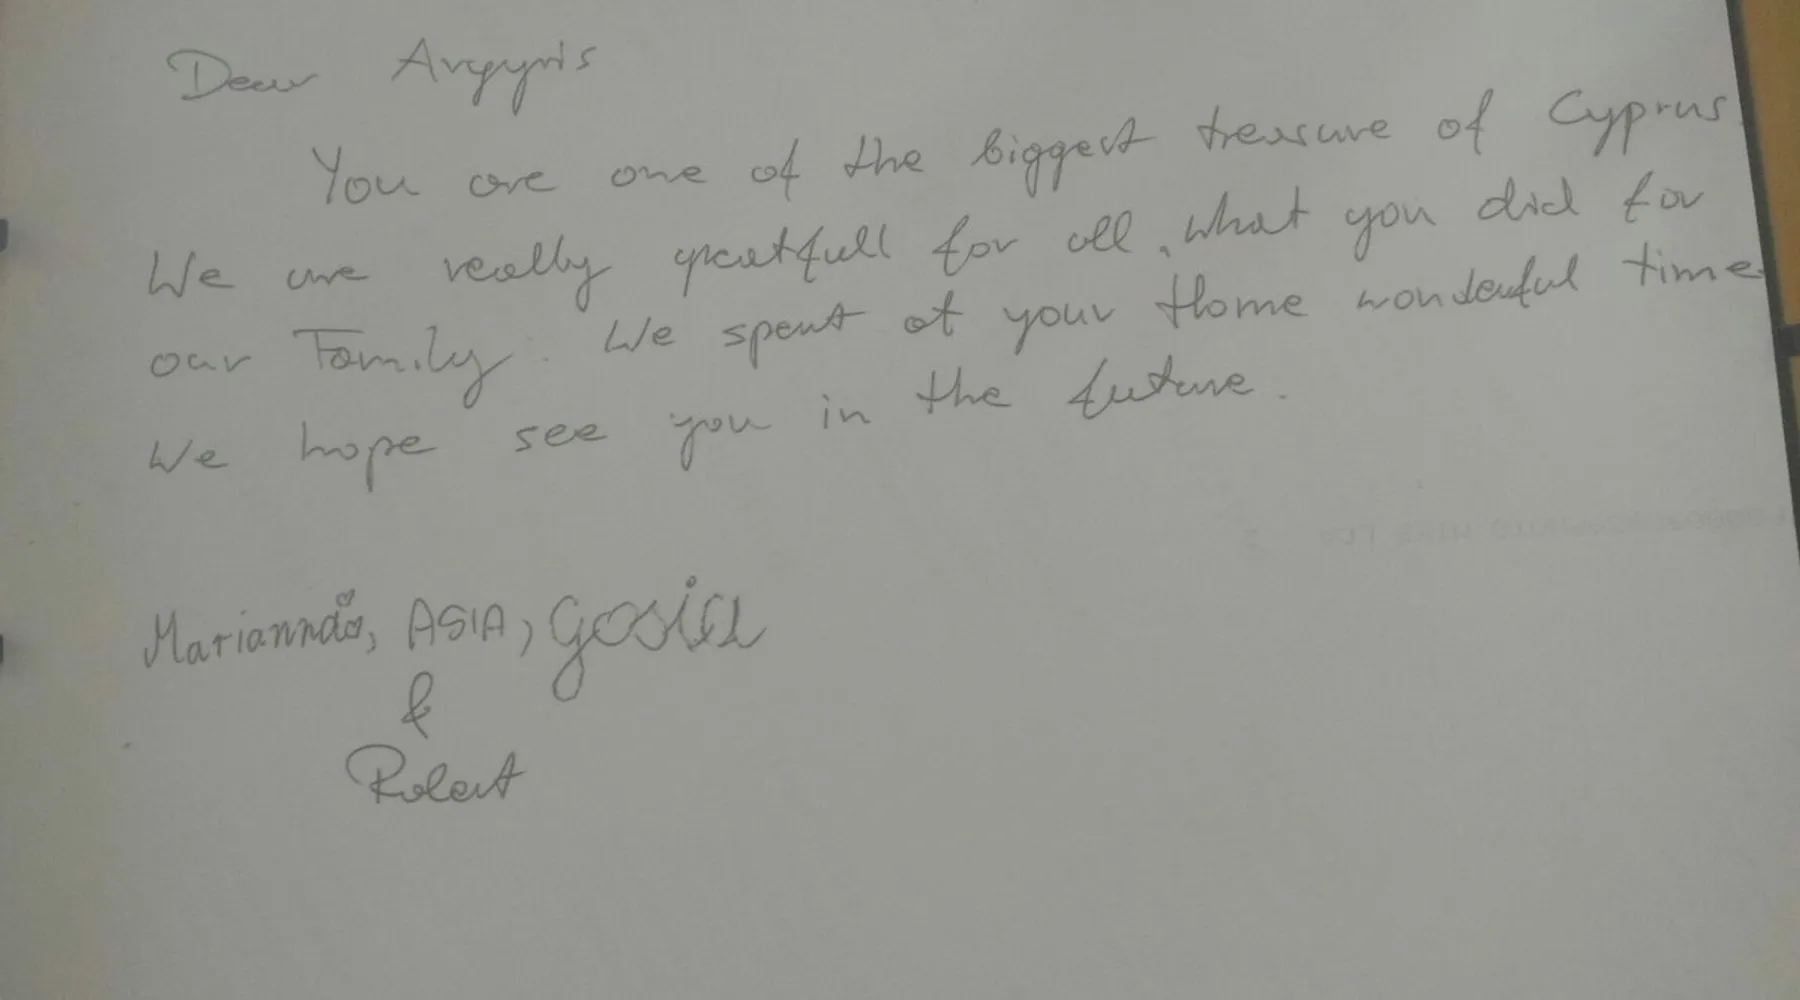 Dear Argyris
You are one of the biggest treasure of Cyprus.
We are really greatfull for all, what you did for
our Family. We spent at your Home wonderful time.
We hope see you in the future.
Marianna, ASIA, Gosia
&
Robert